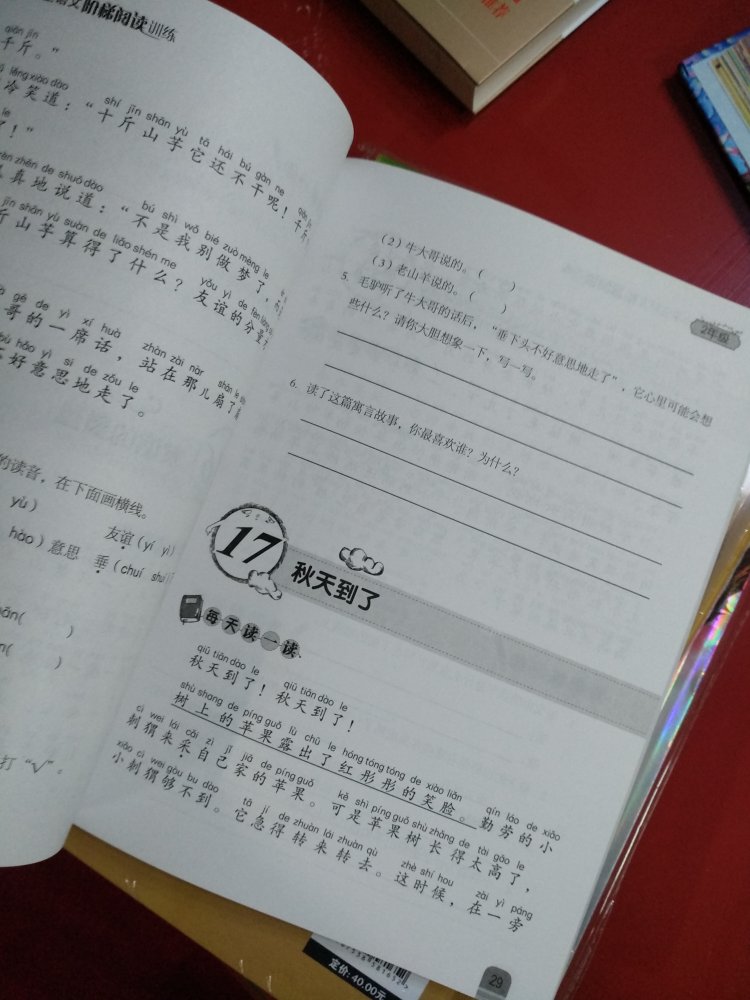 语文阶梯阅读训练
qiān jīn
千斤。”
lěng xiào dào shí jīn shān yù tā hái bú gàn ne
冷笑道：“十斤山芋它还不干呢！千斤
了！”
zhēn de shuō dào bú shì wǒ bié zuò mèng le
真地说道：“不是我别做梦了，
jīn shān yù suàn de liǎo shén me yǒu yì de fèn liàng
斤山芋算得了什么？友谊的分量
gē de yì xí huà zhàn zài nàr
哥的一席话，站在那儿扇了
hǎo yì si de zǒu le
好意思地走了。
的读音，在下面画横线。
yù） 友谊（yí yì）
hào）意思 垂（chuí shuí
ān( )
n( )
打“√”。
2年级
（2）牛大哥说的。（ ）
（3）老山羊说的。（ ）
5. 毛驴听了牛大哥的话后，“垂下头不好意思地走了”，它心里可能会想
些什么？请你大胆想象一下，写一写。
6. 读了这篇寓言故事，你最喜欢谁？为什么？
17 秋天到了
每天读一读
qiū tiān dào le qiū tiān dào le
秋天到了！秋天到了！
shù shang de píng guǒ lù chū le hóng tóng tóng de xiào liǎn qín láo de xiǎo
树上的苹果露出了红彤彤的笑脸。勤劳的小
cì wei lái cǎi zì jǐ jiā de píng guǒ kě shì píng guǒ shù zhǎng de tài gāo le
刺猬来采自己家的苹果。可是苹果树长得太高了，
xiǎo cì wei gòu bu dào tā jí de zhuàn lái zhuàn qù zhè shí hou zài yì páng
小刺猬够不到。它急得转来转去。这时候，在一旁
29
定价：40.00元